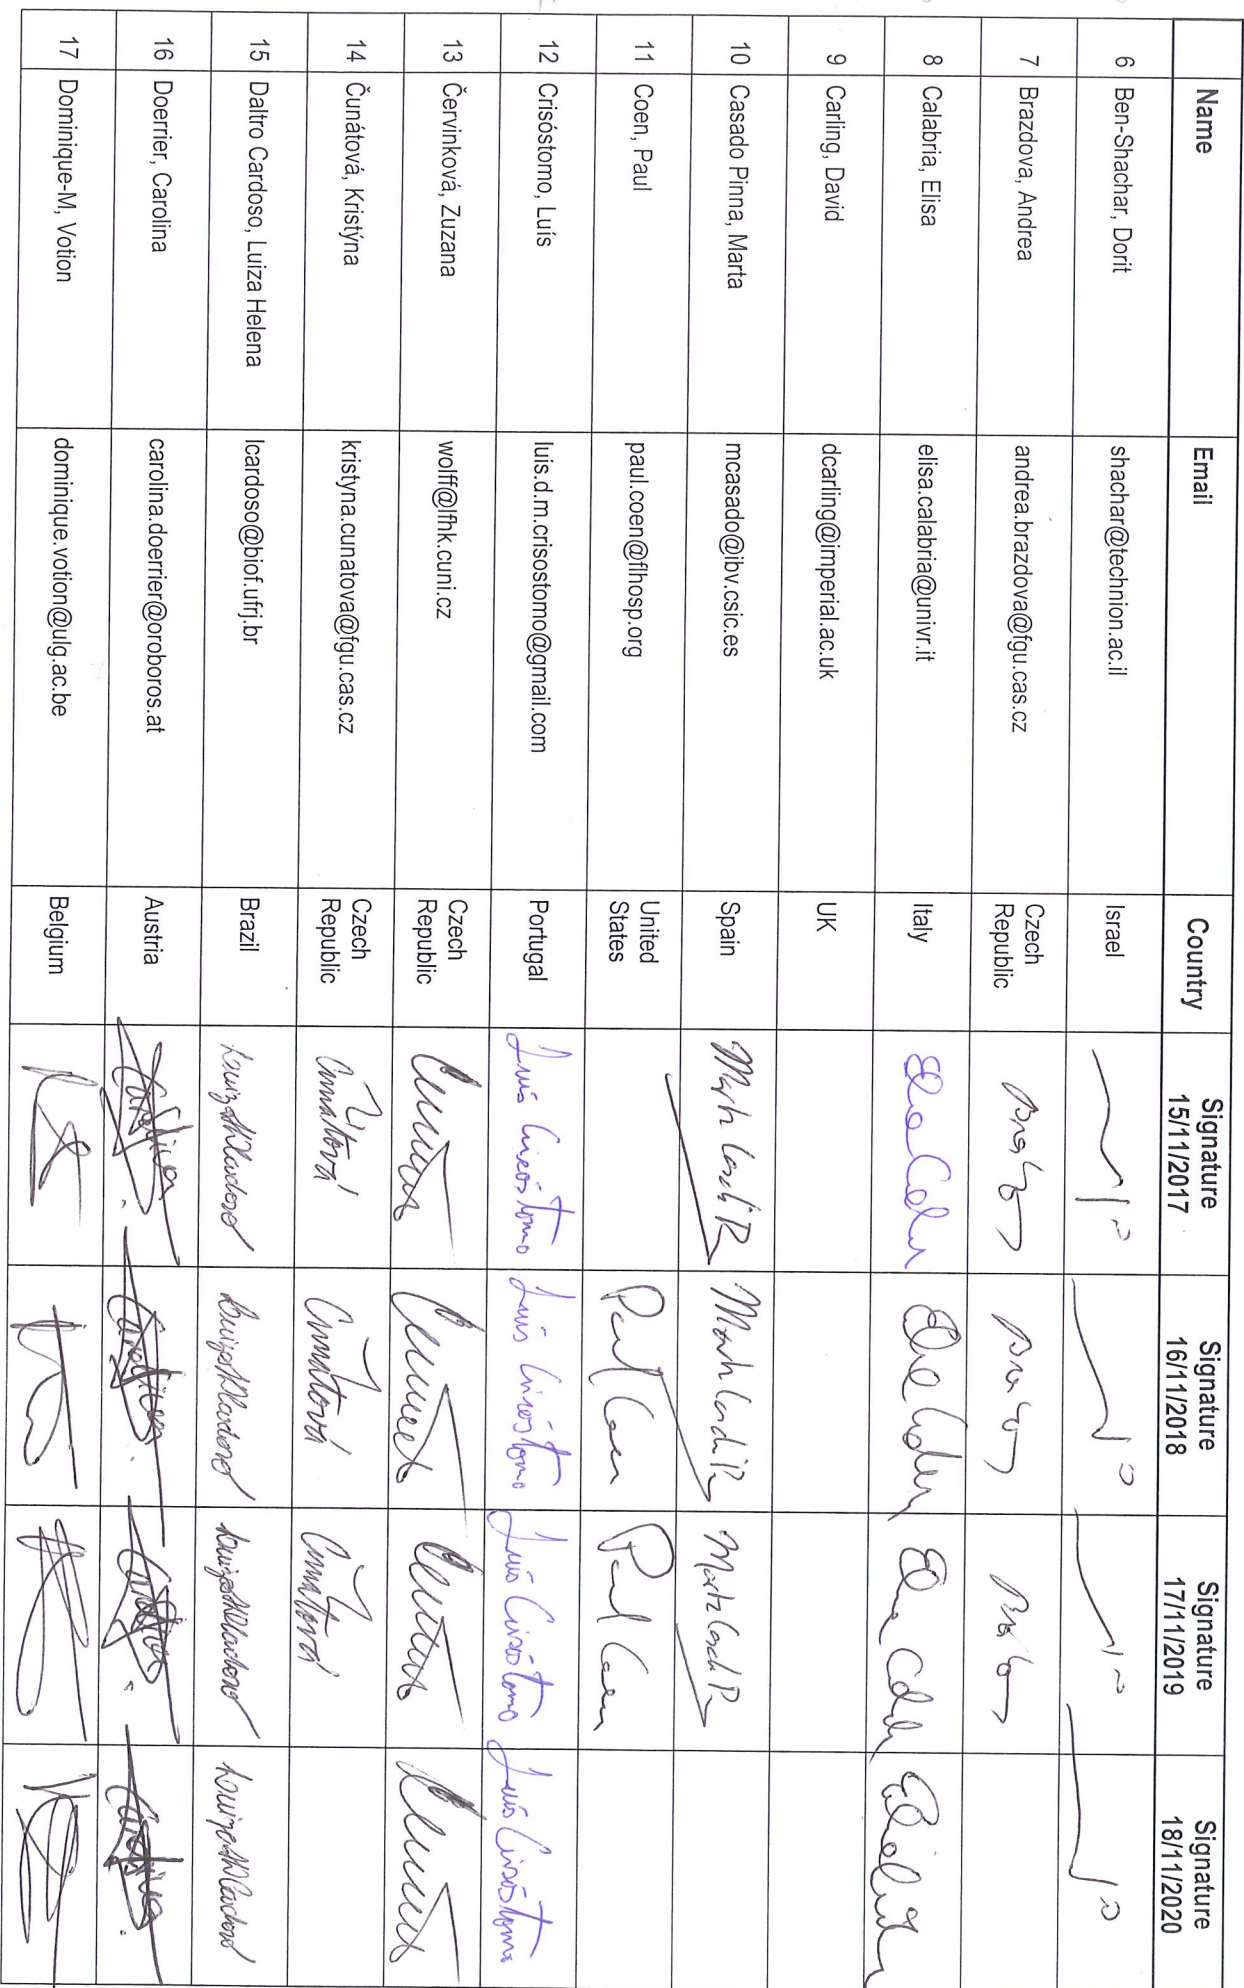 Name Email Country Signature 15/11/2017 Signature 16/11/2018 Signature 17/11/2019 Signature 18/11/2020
6 Ben-Shachar, Dorit shachar@technion.ac.il Israel
7 Brazdova, Andrea andrea.brazdova@fgu.cas.cz Czech Republic
8 Calabria, Elisa elisa.calabria@univr.it Italy
9 Carling, David dcarling@imperial.ac.uk UK
10 Casado Pinna, Marta mcasado@ibv.csic.es Spain
11 Coen, Paul paul.coen@flhosp.org United States Paul Coen Paul Coen
12 Crisóstomo, Luís luis.d.m.crisostomo@gmail.com Portugal Luís Crisóstomo Luís Crisóstomo Luís Crisóstomo Luís Crisóstomo
13 Červinková, Zuzana wolff@lfhk.cuni.cz Czech Republic
14 Čunátová, Kristýna kristyna.cunatova@fgu.cas.cz Czech Republic Čunátová Čunátová Čunátová
15 Daltro Cardoso, Luiza Helena lcardoso@biof.ufrj.br Brazil
16 Doerrier, Carolina carolina.doerrier@oroboros.at Austria Carolina Carolina Carolina Carolina
17 Dominique-M, Votion dominique.votion@ulg.ac.be Belgium